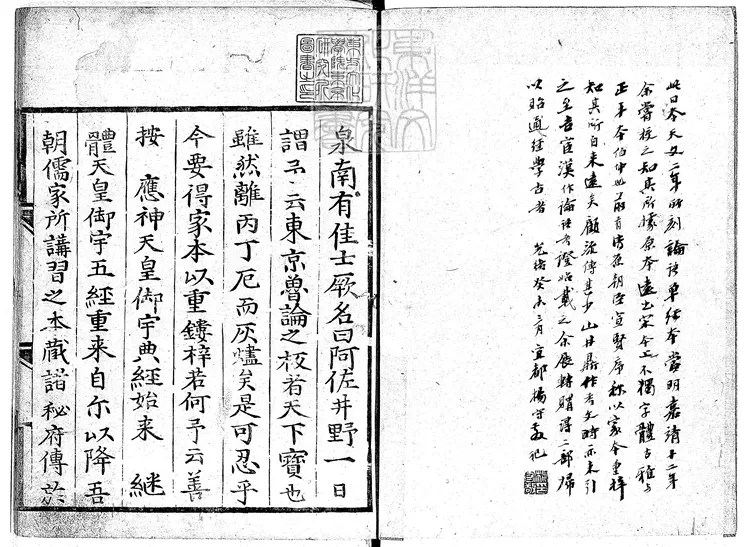 此日本天文二年所刻論語單經本當明嘉靖十二年
余嘗校之知其所據原本遠出宋本之上不獨字體古雅與
正平本伯仲也前有清原朝臣宣賢序稱以家本重梓
知其所自来遠矣顧流傳甚少山井鼎作考文時亦未引
之至吉宦漢作論語考證始載之余展轉購得二部歸
以貽通經學古者 光緒癸未三月宜都楊守敬記
東方文化
學院東京
研究所
圖書之印
泉南有佳士厥名曰阿佐井野一日
謂予云東京魯論之板者天下寶也
雖然離丙丁厄而灰燼矣是可忍乎
今要得家本以重鏤梓若何予云善
按 應神天皇御宇典經始来 継
體天皇御宇五經重来自尓以降吾
朝儒家所講習之本蔵諸秘府傳於